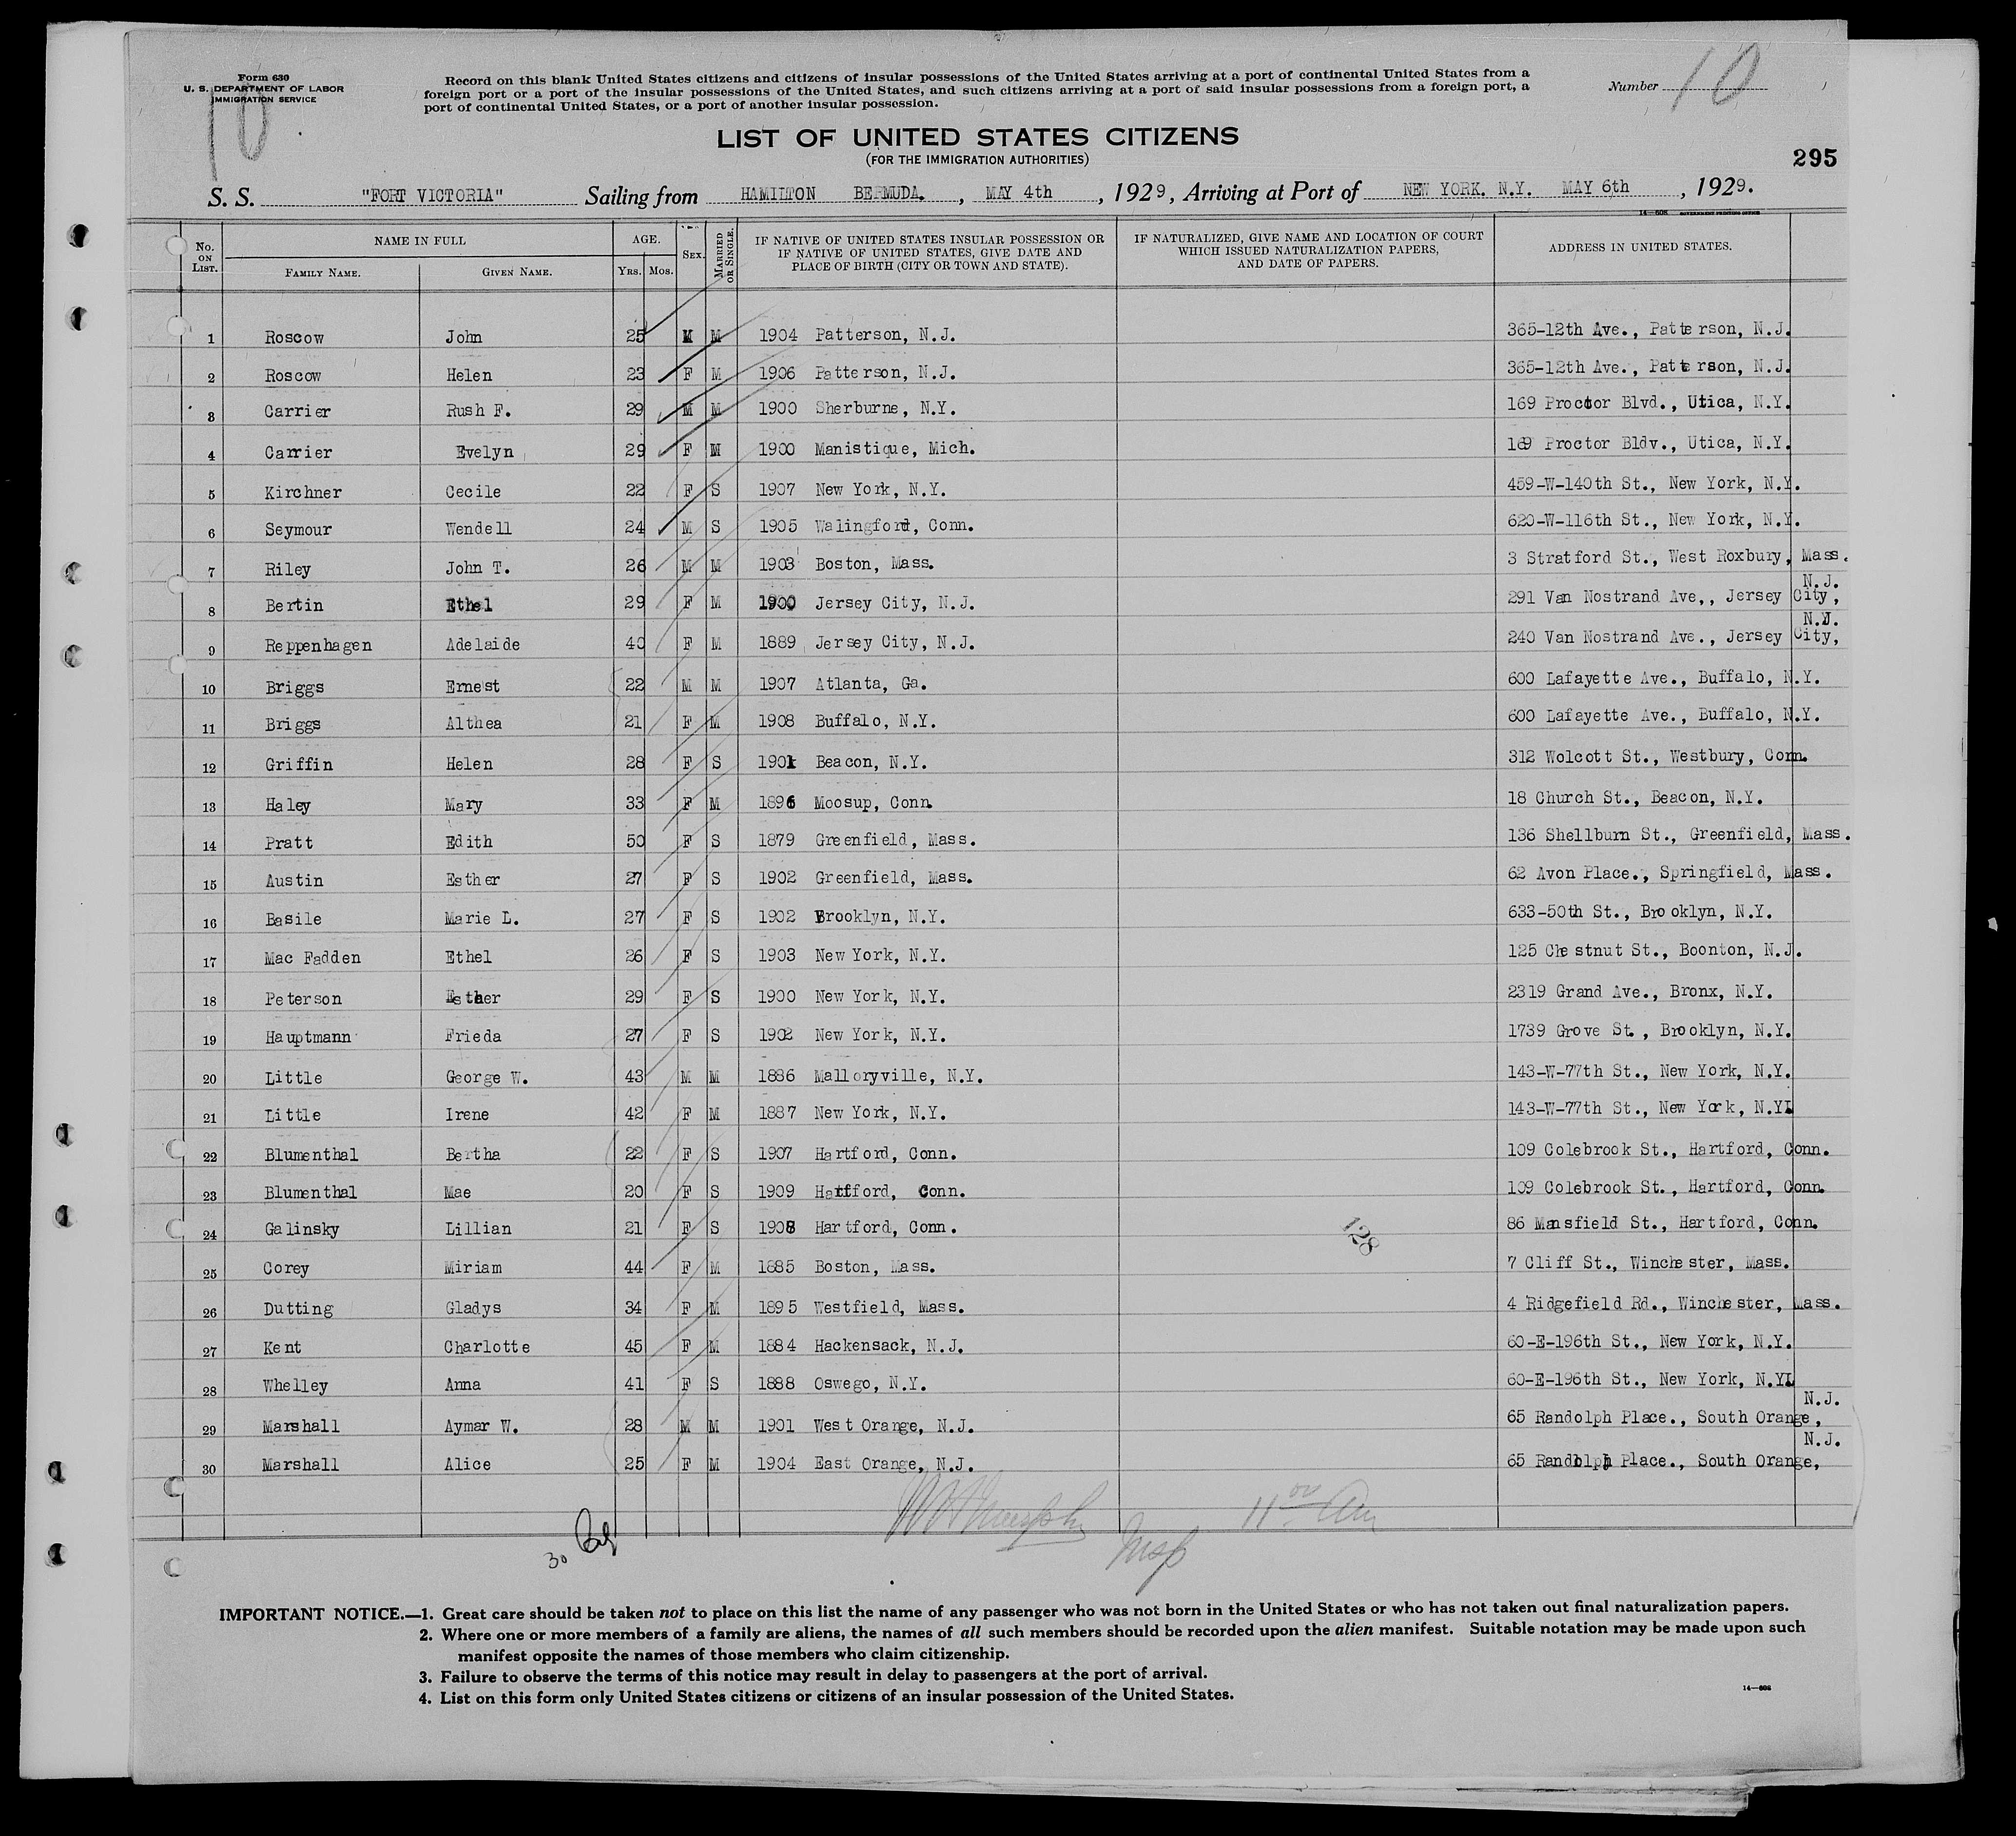 Form 630
U. S. DEPARTMENT OF LABOR
IMMIGRATION SERVICE
10
Record on this blank United States citizens and citizens of insular possessions of the United States arriving at a port of continental United States from a
foreign port or a port of the insular possessions of the United States, and such citizens arriving at a port of said insular possessions from a foreign port, a
port of continental United States, or a port of another insular possession.
Number 10
LIST OF UNITED STATES CITIZENS
(FOR THE IMMIGRATION AUTHORITIES)
295
S. S. "FORT VICTORIA" Sailing from HAMILTON BERMUDA. , MAY 4th , 1929, Arriving at Port of NEW YORK. N.Y. MAY 6th , 1929.
14—608 GOVERNMENT PRINTING OFFICE
No. ON LIST. NAME IN FULL FAMILY NAME. GIVEN NAME. AGE. Yrs. Mos. SEX. MARRIED OR SINGLE. IF NATIVE OF UNITED STATES INSULAR POSSESSION OR IF NATIVE OF UNITED STATES, GIVE DATE AND PLACE OF BIRTH (CITY OR TOWN AND STATE). IF NATURALIZED, GIVE NAME AND LOCATION OF COURT WHICH ISSUED NATURALIZATION PAPERS, AND DATE OF PAPERS. ADDRESS IN UNITED STATES.
1 Roscow John 25 M M 1904 Patterson, N.J. 365-12th Ave., Patterson, N.J.
2 Roscow Helen 23 F M 1906 Patterson, N.J. 365-12th Ave., Patterson, N.J.
3 Carrier Rush F. 29 M M 1900 Sherburne, N.Y. 169 Proctor Blvd., Utica, N.Y.
4 Carrier Evelyn 29 F M 1900 Manistique, Mich. 169 Proctor Bldv., Utica, N.Y.
5 Kirchner Cecile 22 F S 1907 New York, N.Y. 459-W-140th St., New York, N.Y.
6 Seymour Wendell 24 M S 1905 Walingford, Conn. 620-W-116th St., New York, N.Y.
7 Riley John T. 26 M M 1903 Boston, Mass. 3 Stratford St., West Roxbury, Mass.
8 Bertin Ethel 29 F M 1900 Jersey City, N.J. 291 Van Nostrand Ave,, Jersey City, N.J.
9 Reppenhagen Adelaide 40 F M 1889 Jersey City, N.J. 240 Van Nostrand Ave., Jersey City, N.J.
10 Briggs Ernest 22 M M 1907 Atlanta, Ga. 600 Lafayette Ave., Buffalo, N.Y.
11 Briggs Althea 21 F M 1908 Buffalo, N.Y. 600 Lafayette Ave., Buffalo, N.Y.
12 Griffin Helen 28 F S 1901 Beacon, N.Y. 312 Wolcott St., Westbury, Conn.
13 Haley Mary 33 F M 1896 Moosup, Conn. 18 Church St., Beacon, N.Y.
14 Pratt Edith 50 F S 1879 Greenfield, Mass. 136 Shellburn St., Greenfield, Mass.
15 Austin Esther 27 F S 1902 Greenfield, Mass. 62 Avon Place., Springfield, Mass.
16 Basile Marie L. 27 F S 1902 Brooklyn, N.Y. 633-50th St., Brooklyn, N.Y.
17 Mac Fadden Ethel 26 F S 1903 New York, N.Y. 125 Chestnut St., Boonton, N.J.
18 Peterson Esther 29 F S 1900 New York, N.Y. 2319 Grand Ave., Bronx, N.Y.
19 Hauptmann Frieda 27 F S 1902 New York, N.Y. 1739 Grove St., Brooklyn, N.Y.
20 Little George W. 43 M M 1886 Malloryville, N.Y. 143-W-77th St., New York, N.Y.
21 Little Irene 42 F M 1887 New York, N.Y. 143-W-77th St., New York, N.Y.
22 Blumenthal Bertha 22 F S 1907 Hartford, Conn. 109 Colebrook St., Hartford, Conn.
23 Blumenthal Mae 20 F S 1909 Hartford, Conn. 109 Colebrook St., Hartford, Conn.
24 Galinsky Lillian 21 F S 1908 Hartford, Conn. 86 Mansfield St., Hartford, Conn.
128
25 Corey Miriam 44 F M 1885 Boston, Mass. 7 Cliff St., Winchester, Mass.
26 Dutting Gladys 34 F M 1895 Westfield, Mass. 4 Ridgefield Rd., Winchester, Mass.
27 Kent Charlotte 45 F M 1884 Hackensack, N.J. 60-E-196th St., New York, N.Y.
28 Whelley Anna 41 F S 1888 Oswego, N.Y. 60-E-196th St., New York, N.Y.
29 Marshall Aymar W. 28 M M 1901 West Orange, N.J. 65 Randolph Place., South Orange, N.J.
30 Marshall Alice 25 F M 1904 East Orange, N.J. 65 Randolph Place., South Orange, N.J.
Insp
11 00 Am
30
IMPORTANT NOTICE.—1. Great care should be taken not to place on this list the name of any passenger who was not born in the United States or who has not taken out final naturalization papers.
2. Where one or more members of a family are aliens, the names of all such members should be recorded upon the alien manifest. Suitable notation may be made upon such
manifest opposite the names of those members who claim citizenship.
3. Failure to observe the terms of this notice may result in delay to passengers at the port of arrival.
4. List on this form only United States citizens or citizens of an insular possession of the United States.
14—608